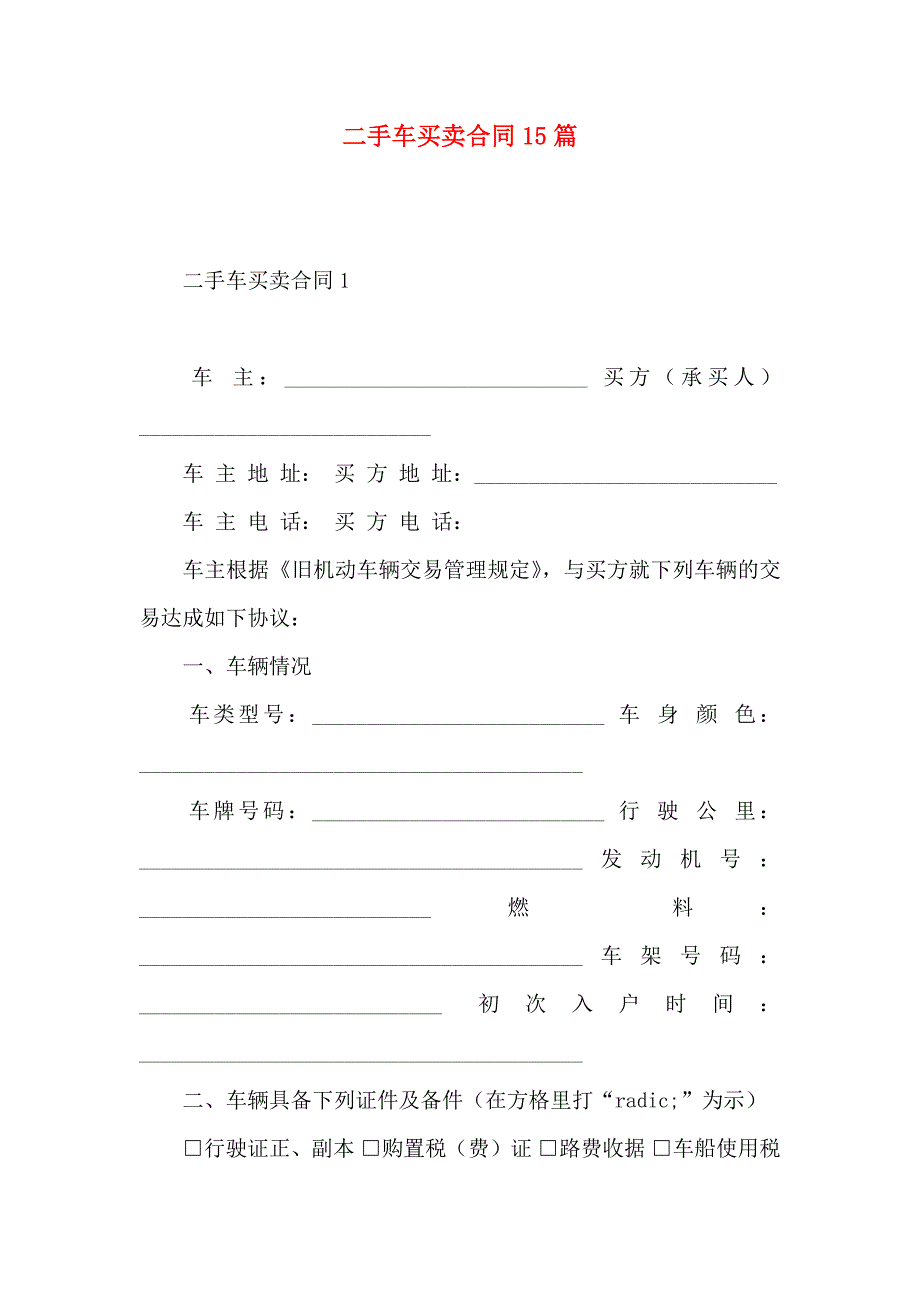 二手车买卖合同 15 篇
二手车买卖合同 1
车 主：____________________________ 买方（承买人）
___________________________
车 主 地 址： 买 方 地 址：____________________________
车 主 电 话： 买 方 电 话：
车主根据《旧机动车辆交易管理规定》，与买方就下列车辆的交
易达成如下协议：
一、车辆情况
车类型号：___________________________ 车 身 颜 色：
_________________________________________
车牌号码：___________________________ 行 驶 公 里：
_________________________________________ 发 动 机 号：
___________________________ 燃 料：
_________________________________________ 车 架 号 码：
____________________________ 初 次 入 户 时 间：
_________________________________________
二、车辆具备下列证件及备件（在方格里打“radic;”为示）
□行驶证正、副本 □购置税（费）证 □路费收据 □车船使用税